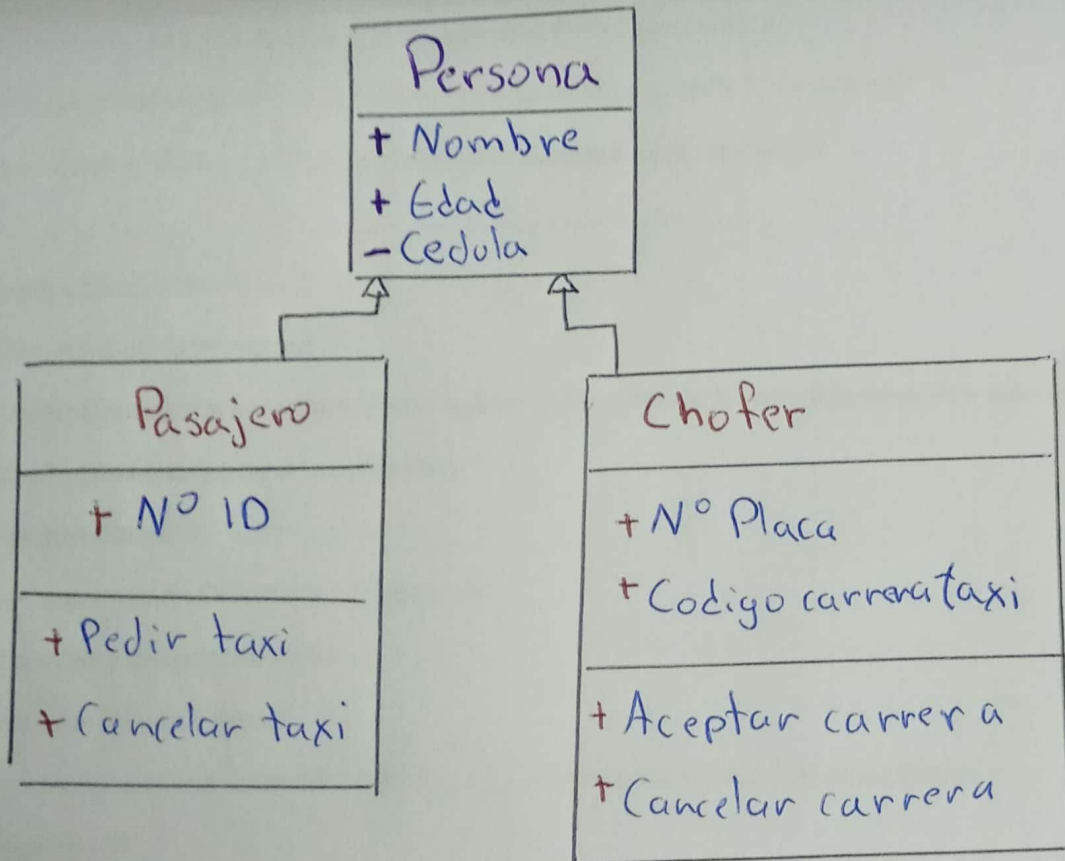 Persona
+ Nombre
+ Edad
- Cedula
Pasajero
+ Nº ID
+ Pedir taxi
+ Cancelar taxi
Chofer
+ Nº Placa
+ Codigo carrera taxi
+ Aceptar carrera
+ Cancelar carrera